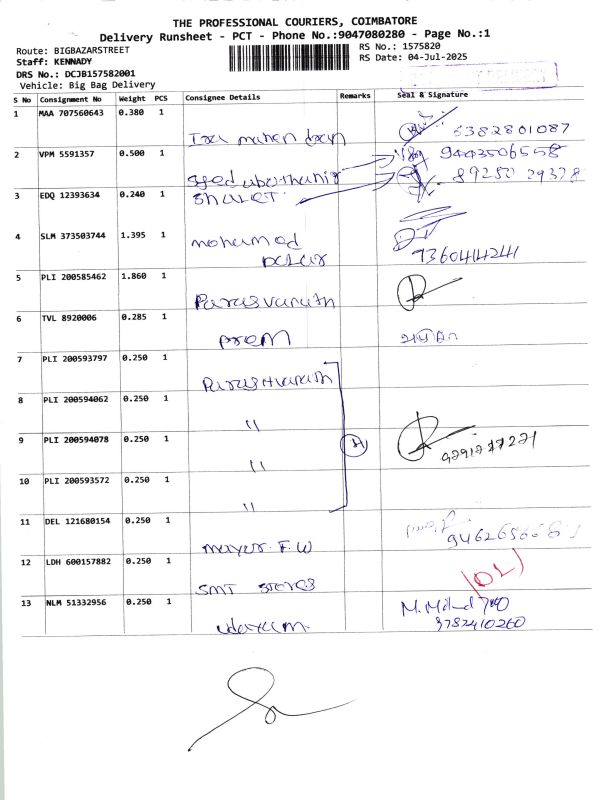 THE PROFESSIONAL COURIERS, COIMBATORE
Delivery Runsheet - PCT - Phone No.:9047080280 - Page No.:1
Route: BIGBAZARSTREET
RS No.: 1575820
Staff: KENNADY
RS Date: 04-Jul-2025
DRS No.: DCJB157582001
Vehicle: Big Bag Delivery
S No Consignment No Weight PCS Consignee Details Remarks Seal & Signature
1 MAA 707560643 0.380 1
6382801087
2 VPM 5591357 0.500 1
9443506558
3 EDQ 12393634 0.240 1
89250 29378
4 SLM 373503744 1.395 1 mohamed
9360414241
5 PLI 200585462 1.860 1
Parasvanath
6 TVL 8920006 0.285 1
prem
7 PLI 200593797 0.250 1
Parasvanath
8 PLI 200594062 0.250 1
"
9 PLI 200594078 0.250 1
"
10 PLI 200593572 0.250 1
"
11 DEL 121680154 0.250 1
F.W
12 LDH 600157882 0.250 1
SMT stores
(DL)
13 NLM 51332956 0.250 1